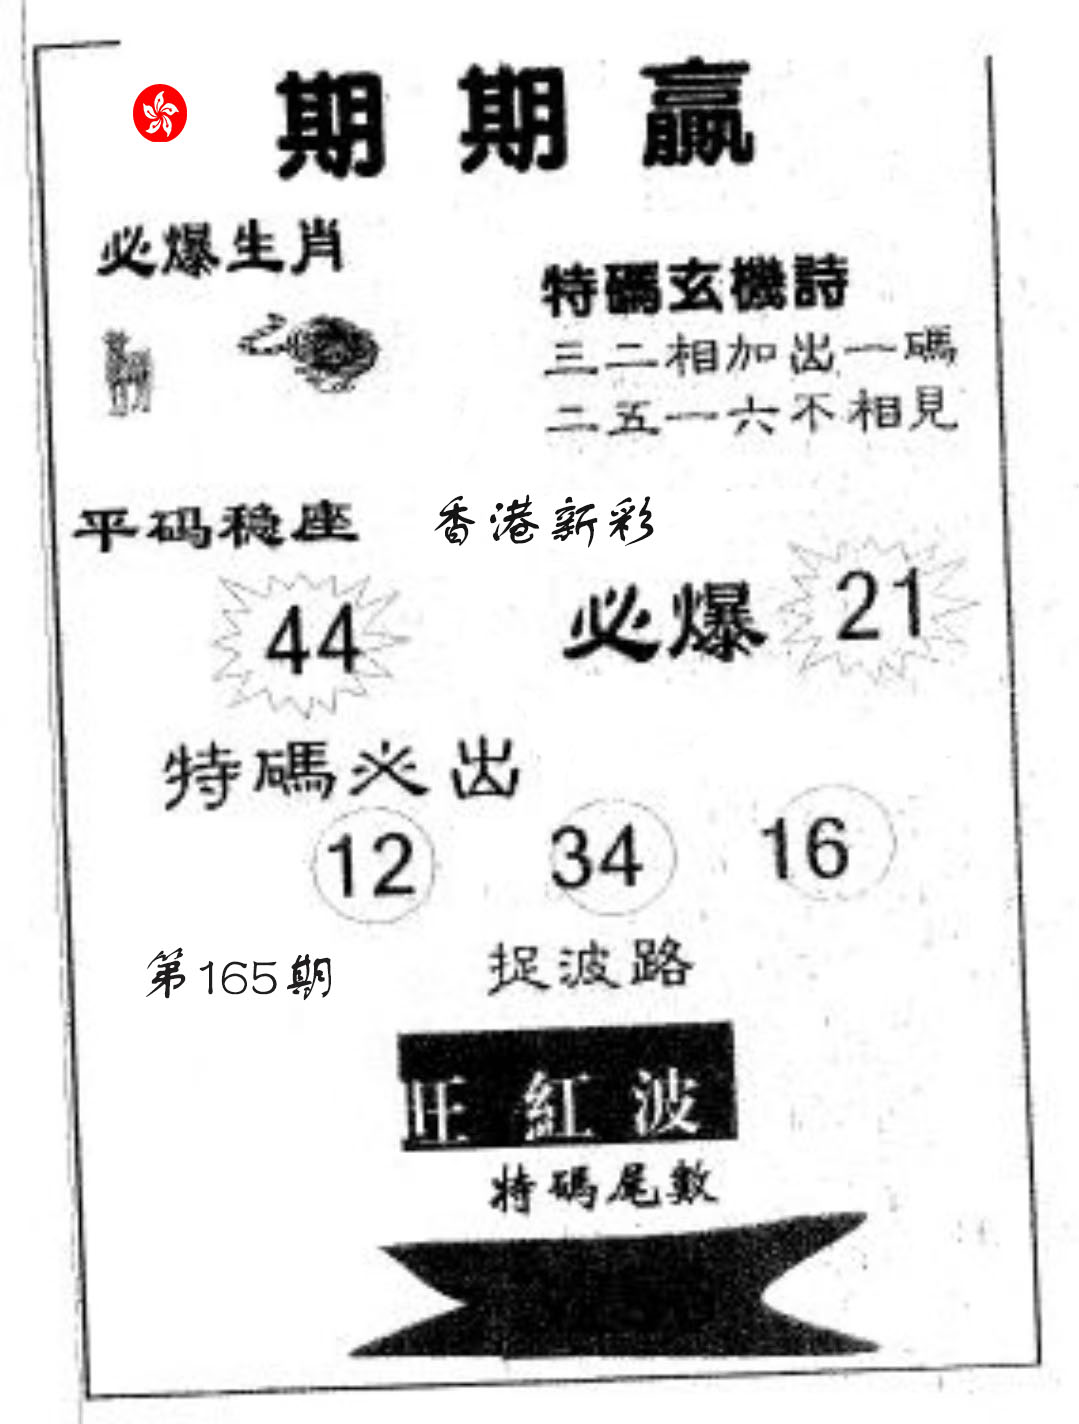 期期贏
必爆生肖
特碼玄機詩
三二相加出一碼
二五一六不相見
平码稳座
香港新彩
44
必爆 21
特碼必出
12 34 16
第165期
捉波路
旺紅波
特碼尾數